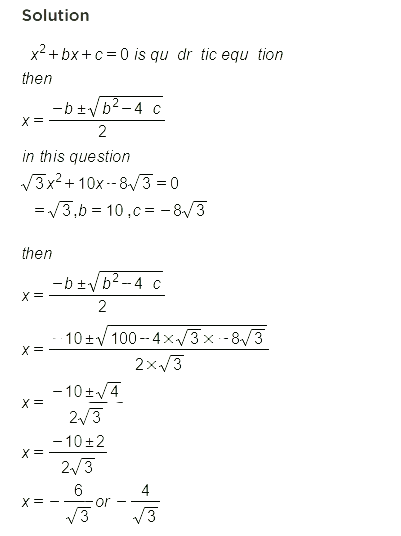 Solution
x² + bx + c = 0 is qu dr tic equ tion
then
x = (-b ± √(b² - 4 c)) / 2
in this question
√3x² + 10x -- 8√3 = 0
= √3, b = 10 , c = -8√3
then
x = (-b ± √(b² - 4 c)) / 2
x = (- 10 ± √(100 -- 4 × √3 × --8√3)) / (2 × √3)
x = (-10 ± √4) / (2√3)
x = (-10 ± 2) / (2√3)
x = - 6/√3 or - 4/√3